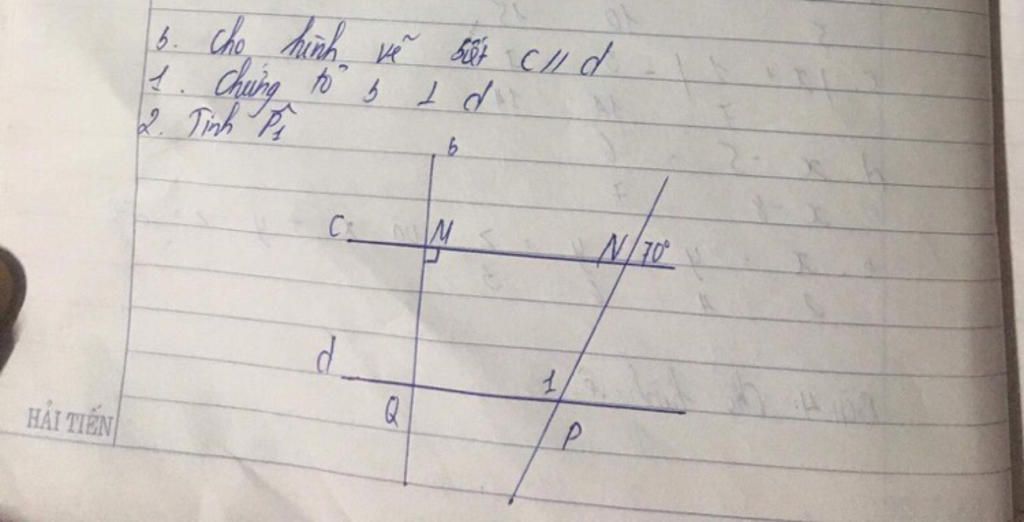 b. Cho hình vẽ biết c // d
1. Chứng tỏ b ⊥ d
2. Tính P̂₁
b
c M N 70°
d 1
Q P
HẢI TIẾN